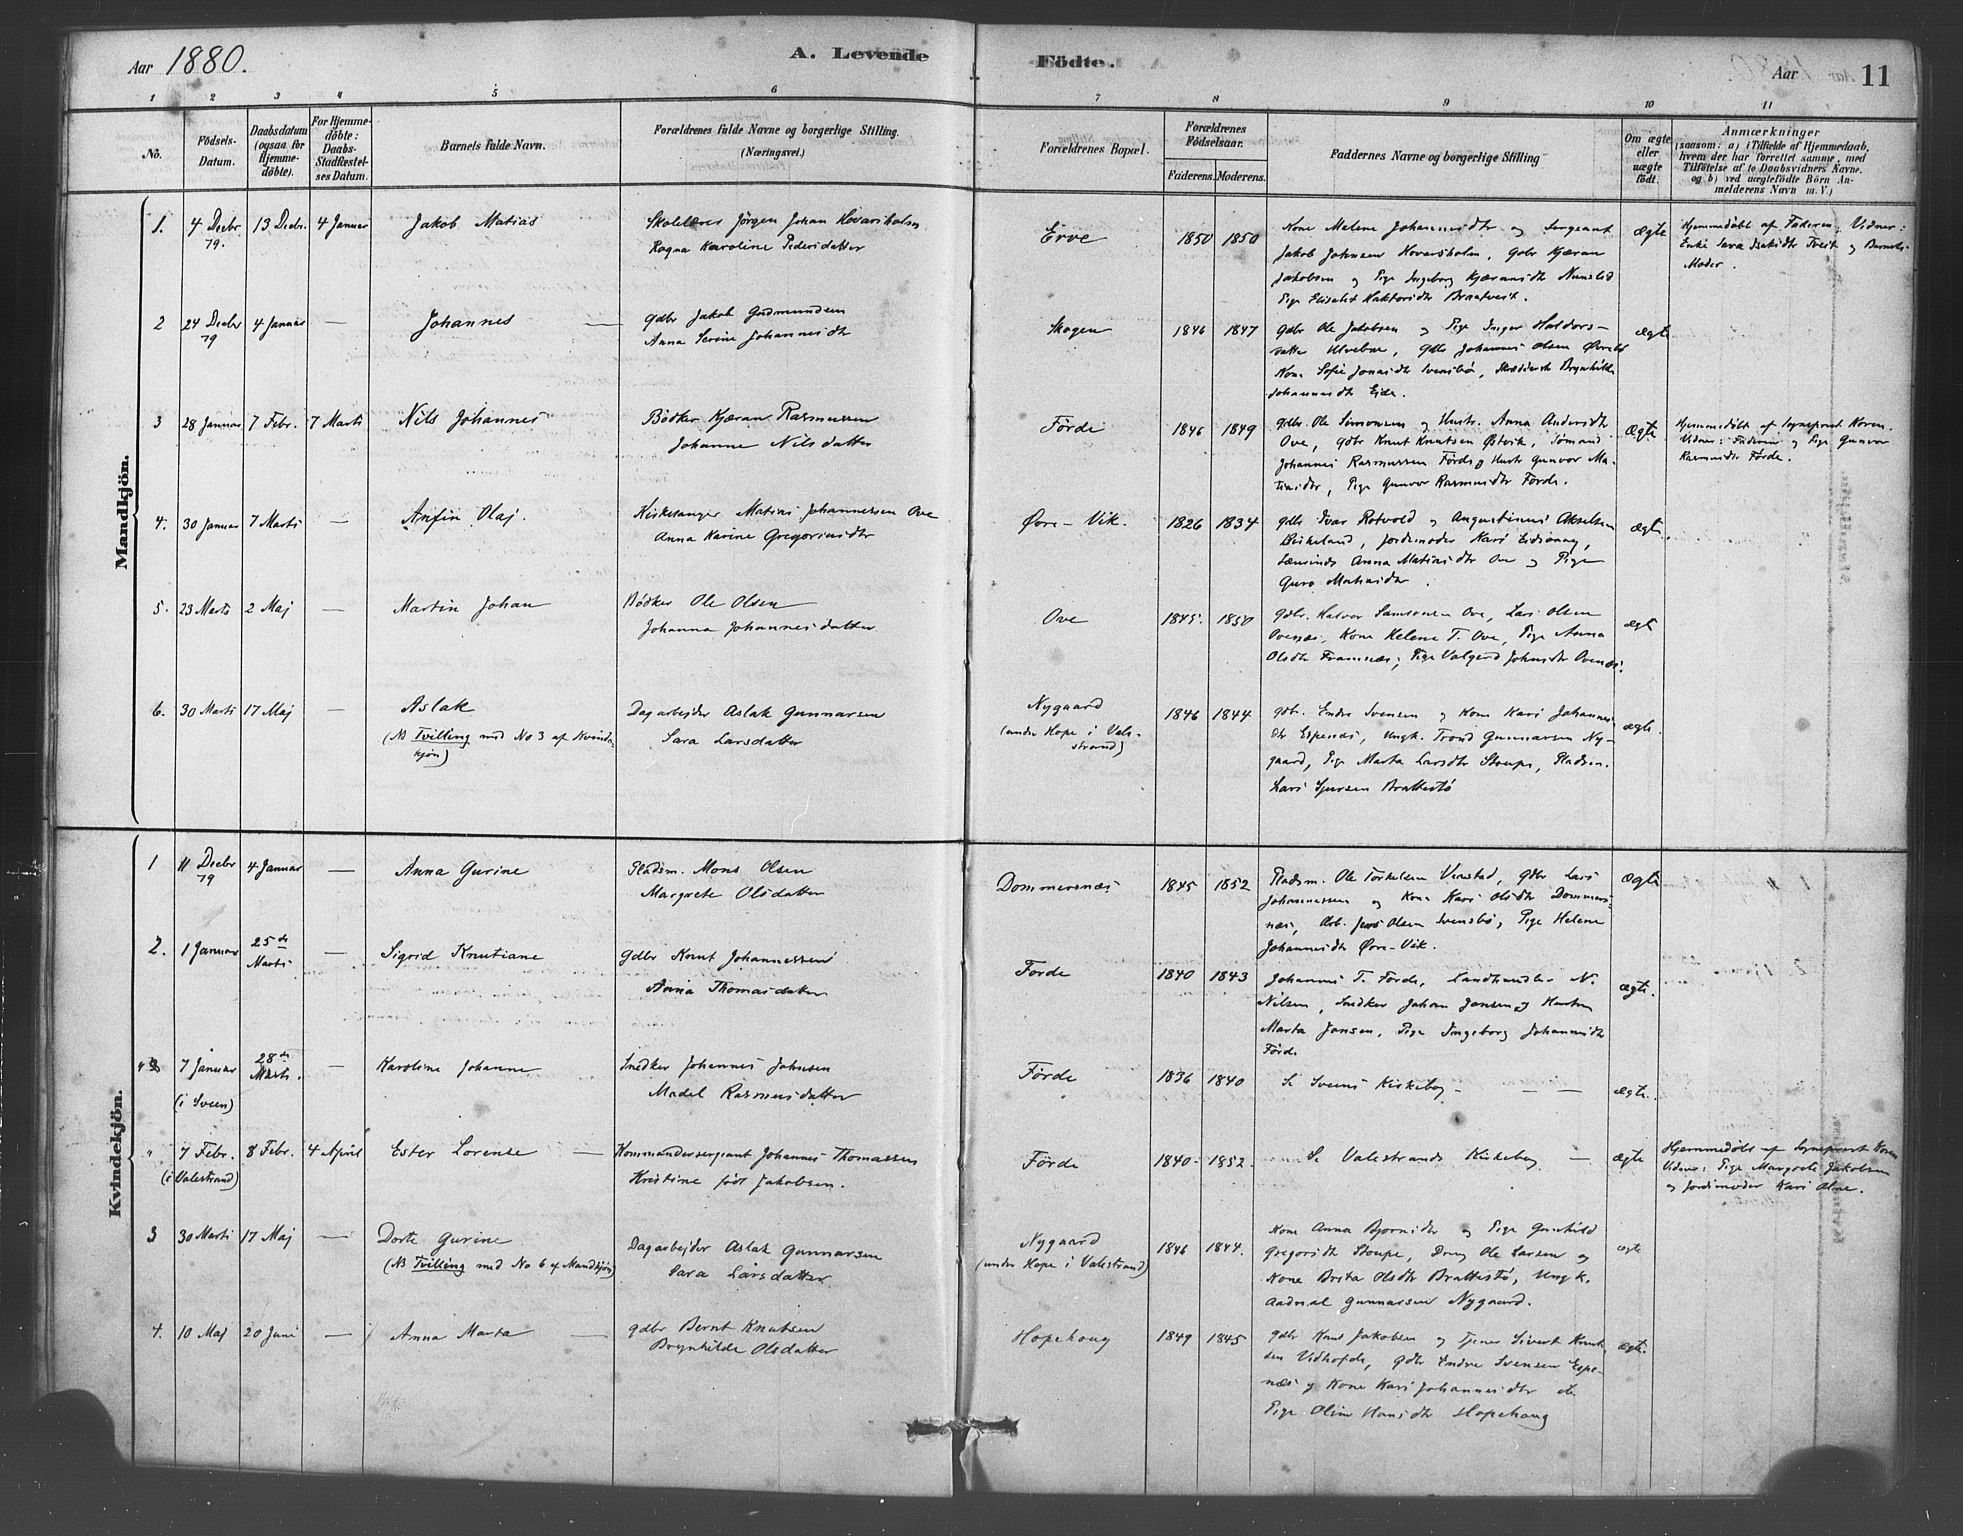 Aar 1880.
A. Levende
Födte.
Aar 11
1 2 3 4 5 6 7 8 9 10 11
No.
Födsels-
Datum.
Daabsdatum
(ogsaa for
Hjemme-
döbte).
For Hjemme-
döbte:
Daabs-
Stadfæstel-
ses Datum.
Barnets fulde Navn.
Forældrenes fulde Navne og borgerlige Stilling.
(Næringsvei.)
Forældrenes Bopæl.
Forældrenes
Födselsaar.
Faderens. Moderens.
Faddernes Navne og borgerlige Stilling
Om ægte
eller
uægte
födt.
Anmærkninger
(saasom: a) i Tilfælde af Hjemmedaab,
hvem der har forrettet samme, med
Tilföielse af to Daabsvidners Navne.
og b) ved uægtefödte Börn An-
melderens Navn m. V.)
Mandkjön.
1. 4 Decbr 79. 13 Decbr. 4 Januar Jakob Matias
Skolelærer Jörgen Johan Hovarsholm
Ragna Karoline Pedersdatter
Erve 1850 1850
Kone Malene Johannesdtr og Sergeant
Jakob Johnsen Hovarsholm, Gdbr Kjæran
Jakobsen og Pige Ingeborg Kjæransdtr
Pige Elisabet
ægte
Hjemmedöbt af Faderen. Vidner:
Enke Sara Tveit og Barnets
Moder.
2 24 Decbr 79 4 Januar — Johannes —
Gdbr Jakob Gudmundsen
Anna Serine Johannesdtr
Skogen 1846 1847
Gdbr Ole Jakobsen og Pige Inger Haldors-
datter, Gdbr Johannes Olsen
Kone Sofie Jonasdtr Svensbö, Brynhilde
Johannesdtr Eide.
ægte
3 28 Januar 7 Febr. 7 Marts Nils Johannes
Bödker Kjæran Rasmussen
Johanne Nilsdatter
Förde 1846 1849
Gdbr Ole Simonsen og Hustr. Anna Andersdtr
Ove, Gdbr Knut Knutsen Östvik, Sömand
Johannes Rasmussen Förde og Hustr Gunvor Ma-
tiasdtr, Pige Gunvor Rasmusdtr Förde.
ægte
Hjemmedöbt af Sognepræst Koren.
Vidner: Faderen og Pige Gunvor
Rasmusdtr Förde.
4. 30 Januar 7 Marts — Anfin Olaj.
Kirkesanger Matias Johannessen Ove
Anna Karine Gregoriusdtr
Øvre-Vik. 1826 1834
Gdbr Ivar Rotvold og Augustinus Akselsen
Birkeland, Jordemoder Kari
Anna Matiasdtr Ove og Pige
Guro Matiasdtr.
ægte.
5. 23 Marts 2 Maj — Martin Johan
Bödker Ole Olsen
Johanna Johannesdatter
Ove 1845. 1850
Gdbr. Halvor Samsonsen Ove, Lars Olsen
Ovenæs, Kone Helene T. Ove, Pige Anna
Olsdtr Framnæs, Pige Valgerd Johnsdtr Ovenæs.
ægte
6. 30 Marts 17 Maj — Aslak
(NB Tvilling med No 3 af Kvinde-
kjön)
Dagarbejder Aslak Gunnarsen
Sara Larsdatter
Nygaard
(under Hope i Vale-
strand)
1846 1844
Gdbr. Endre Svensen og Kone Kari Johannes-
dtr Espenæs, Ungk. Trond Gunnarsen Ny-
gaard, Pige Marta Larsdtr Stoupe, Pladsm.
Lars Sjursen Brattestö
ægte.
Kvindekjön.
1 11 Decbr 79 4 Januar — Anna Gurine
Pladsm. Mons Olsen
Margrete Olsdatter
Dommersnæs 1845 1852
Pladsm. Ole Torkelsen, Gdbr Lars
Johannessen og Kone Kari Olsdtr Dommers-
næs, Arb. Jens Olsen Svensbö, Pige Helene
Johannesdtr Øvre-Vik.
ægte
2. 1 Januar 25de Marts — Sigrid Knutiane
Gdbr Knut Johannessen
Anna Thomasdatter
Förde 1840 1843
Johannes T. Förde, Landhandler N.
Nilsen, Snedker Johan Jansen og Hustru
Marta Jansen, Pige Ingeborg Johannesdtr
Förde
ægte.
7 Januar
(i Sveen)
28de Marts. — Karoline Johanne
Snedker Johannes Johnsen
Madel Rasmusdatter
Förde 1836 1840
Se Sveens Kirkebog — — —
ægte.
" 7 Febr.
(i Valestrand)
8 Febr. 4 April Ester Lorense —
Kommandersergeant Johannes Thomassen
Kristine födt Jakobsen.
Förde 1840 1852.
Se Valestrands Kirkebog —
ægte
Hjemmedöbt af Sognepræst Koren
Vidner: Pige Margrete Jakobsen
og Jordemoder Kari Olne.
3 30 Marts 17 Maj — Dorte Gurine
(NB Tvilling med No 6 af Mandkjön)
Dagarbejder Aslak Gunnarsen
Sara Larsdatter
Nygaard
(under Hope i Valestrand)
1846 1844.
Kone Anna Bjornsdtr og Pige Gunhild
Gregorisdtr Stoupe, Dreng Ole Larsen og
Kone Brita Olsdtr Brattestö, Ungk.
Gunnarsen Nygaard.
ægte
4. 10 Maj 20 Juni — Anna Marta —
Gdbr Bernt Knutsen
Brynhilde Olsdatter
Hopehoug 1849 1845
Gdbr Knut Jakobsen og Tjener Sivert Knut-
sen, Gdbr Endre Svensen Espe-
næs og Kone Kari Johannesdtr
Pige Hansdtr Hopehoug
ægte.